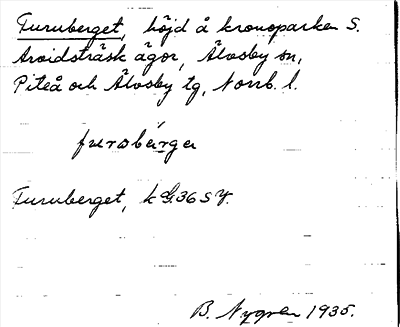 Furuberget, höjd å kronoparken S.
Arvidsträsk ägor, Älvsby sn,
Piteå och Älvsby tg, Norrb. l.
furobérge
Furuberget, k G.36 S y.
B. Nygren 1935.